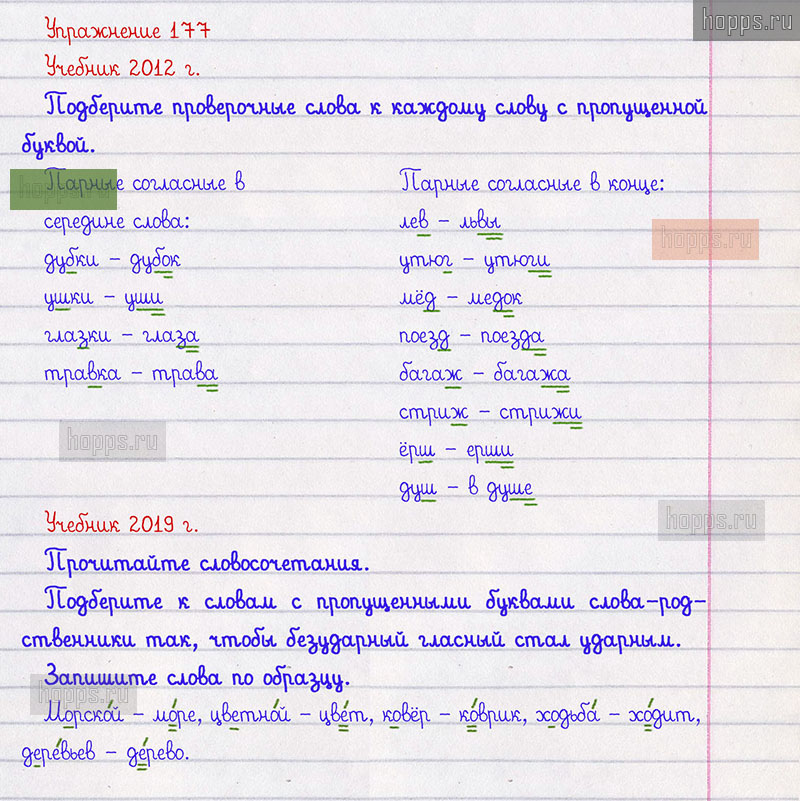 hopps.ru
Упражнение 177
Учебник 2012 г.
Подберите проверочные слова к каждому слову с пропущенной
буквой.
Парные согласные в
середине слова:
дубки – дубок
ушки – уши
глазки – глаза
травка – трава
Парные согласные в конце:
лев – львы
утюг – утюги
мёд – медок
поезд – поезда
багаж – багажа
стриж – стрижи
ёрш – ерши
душ – в душе
hopps.ru
hopps.ru
hopps.ru
hopps.ru
Учебник 2019 г.
Прочитайте словосочетания.
Подберите к словам с пропущенными буквами слова-род-
ственники так, чтобы безударный гласный стал ударным.
Запишите слова по образцу.
hopps.ru
Морско́й – мо́ре, цветно́й – цве́т, ковёр – ко́врик, ходьба́ – хо́дит,
дере́вьев – де́рево.